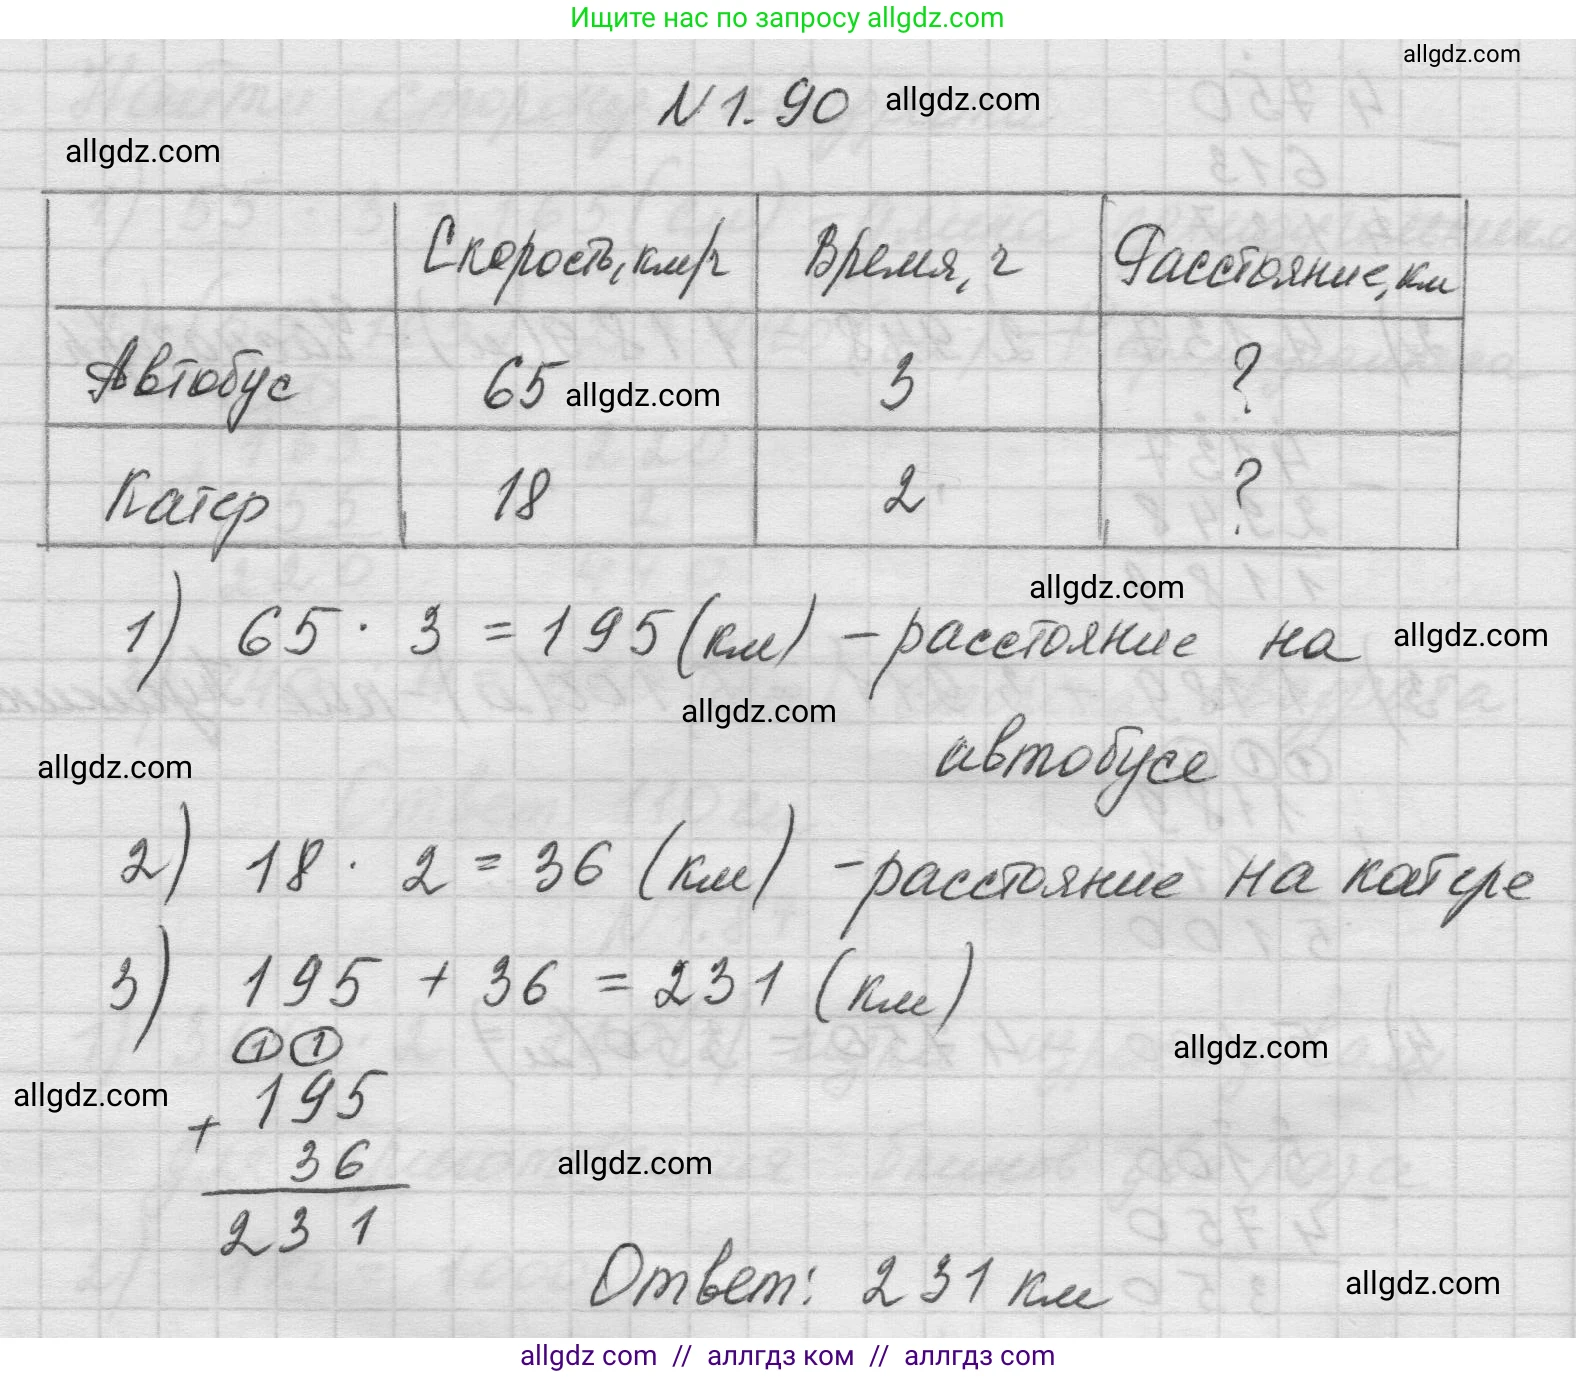 Ищите нас по запросу allgdz.com
allgdz.com
N 1.90 allgdz.com
allgdz.com
Скорость, км/ч Время, ч Расстояние, км
Автобус 65 allgdz.com 3 ?
Катер 18 2 ?
allgdz.com
1) 65 · 3 = 195 (км) - расстояние на allgdz.com
allgdz.com
автобусе
allgdz.com
2) 18 · 2 = 36 (км) - расстояние на катере
3) 195 + 36 = 231 (км)
1 1 allgdz.com
allgdz.com 195
+
36 allgdz.com
231
Ответ: 231 км allgdz.com
allgdz com // аллгдз ком // аллгдз com